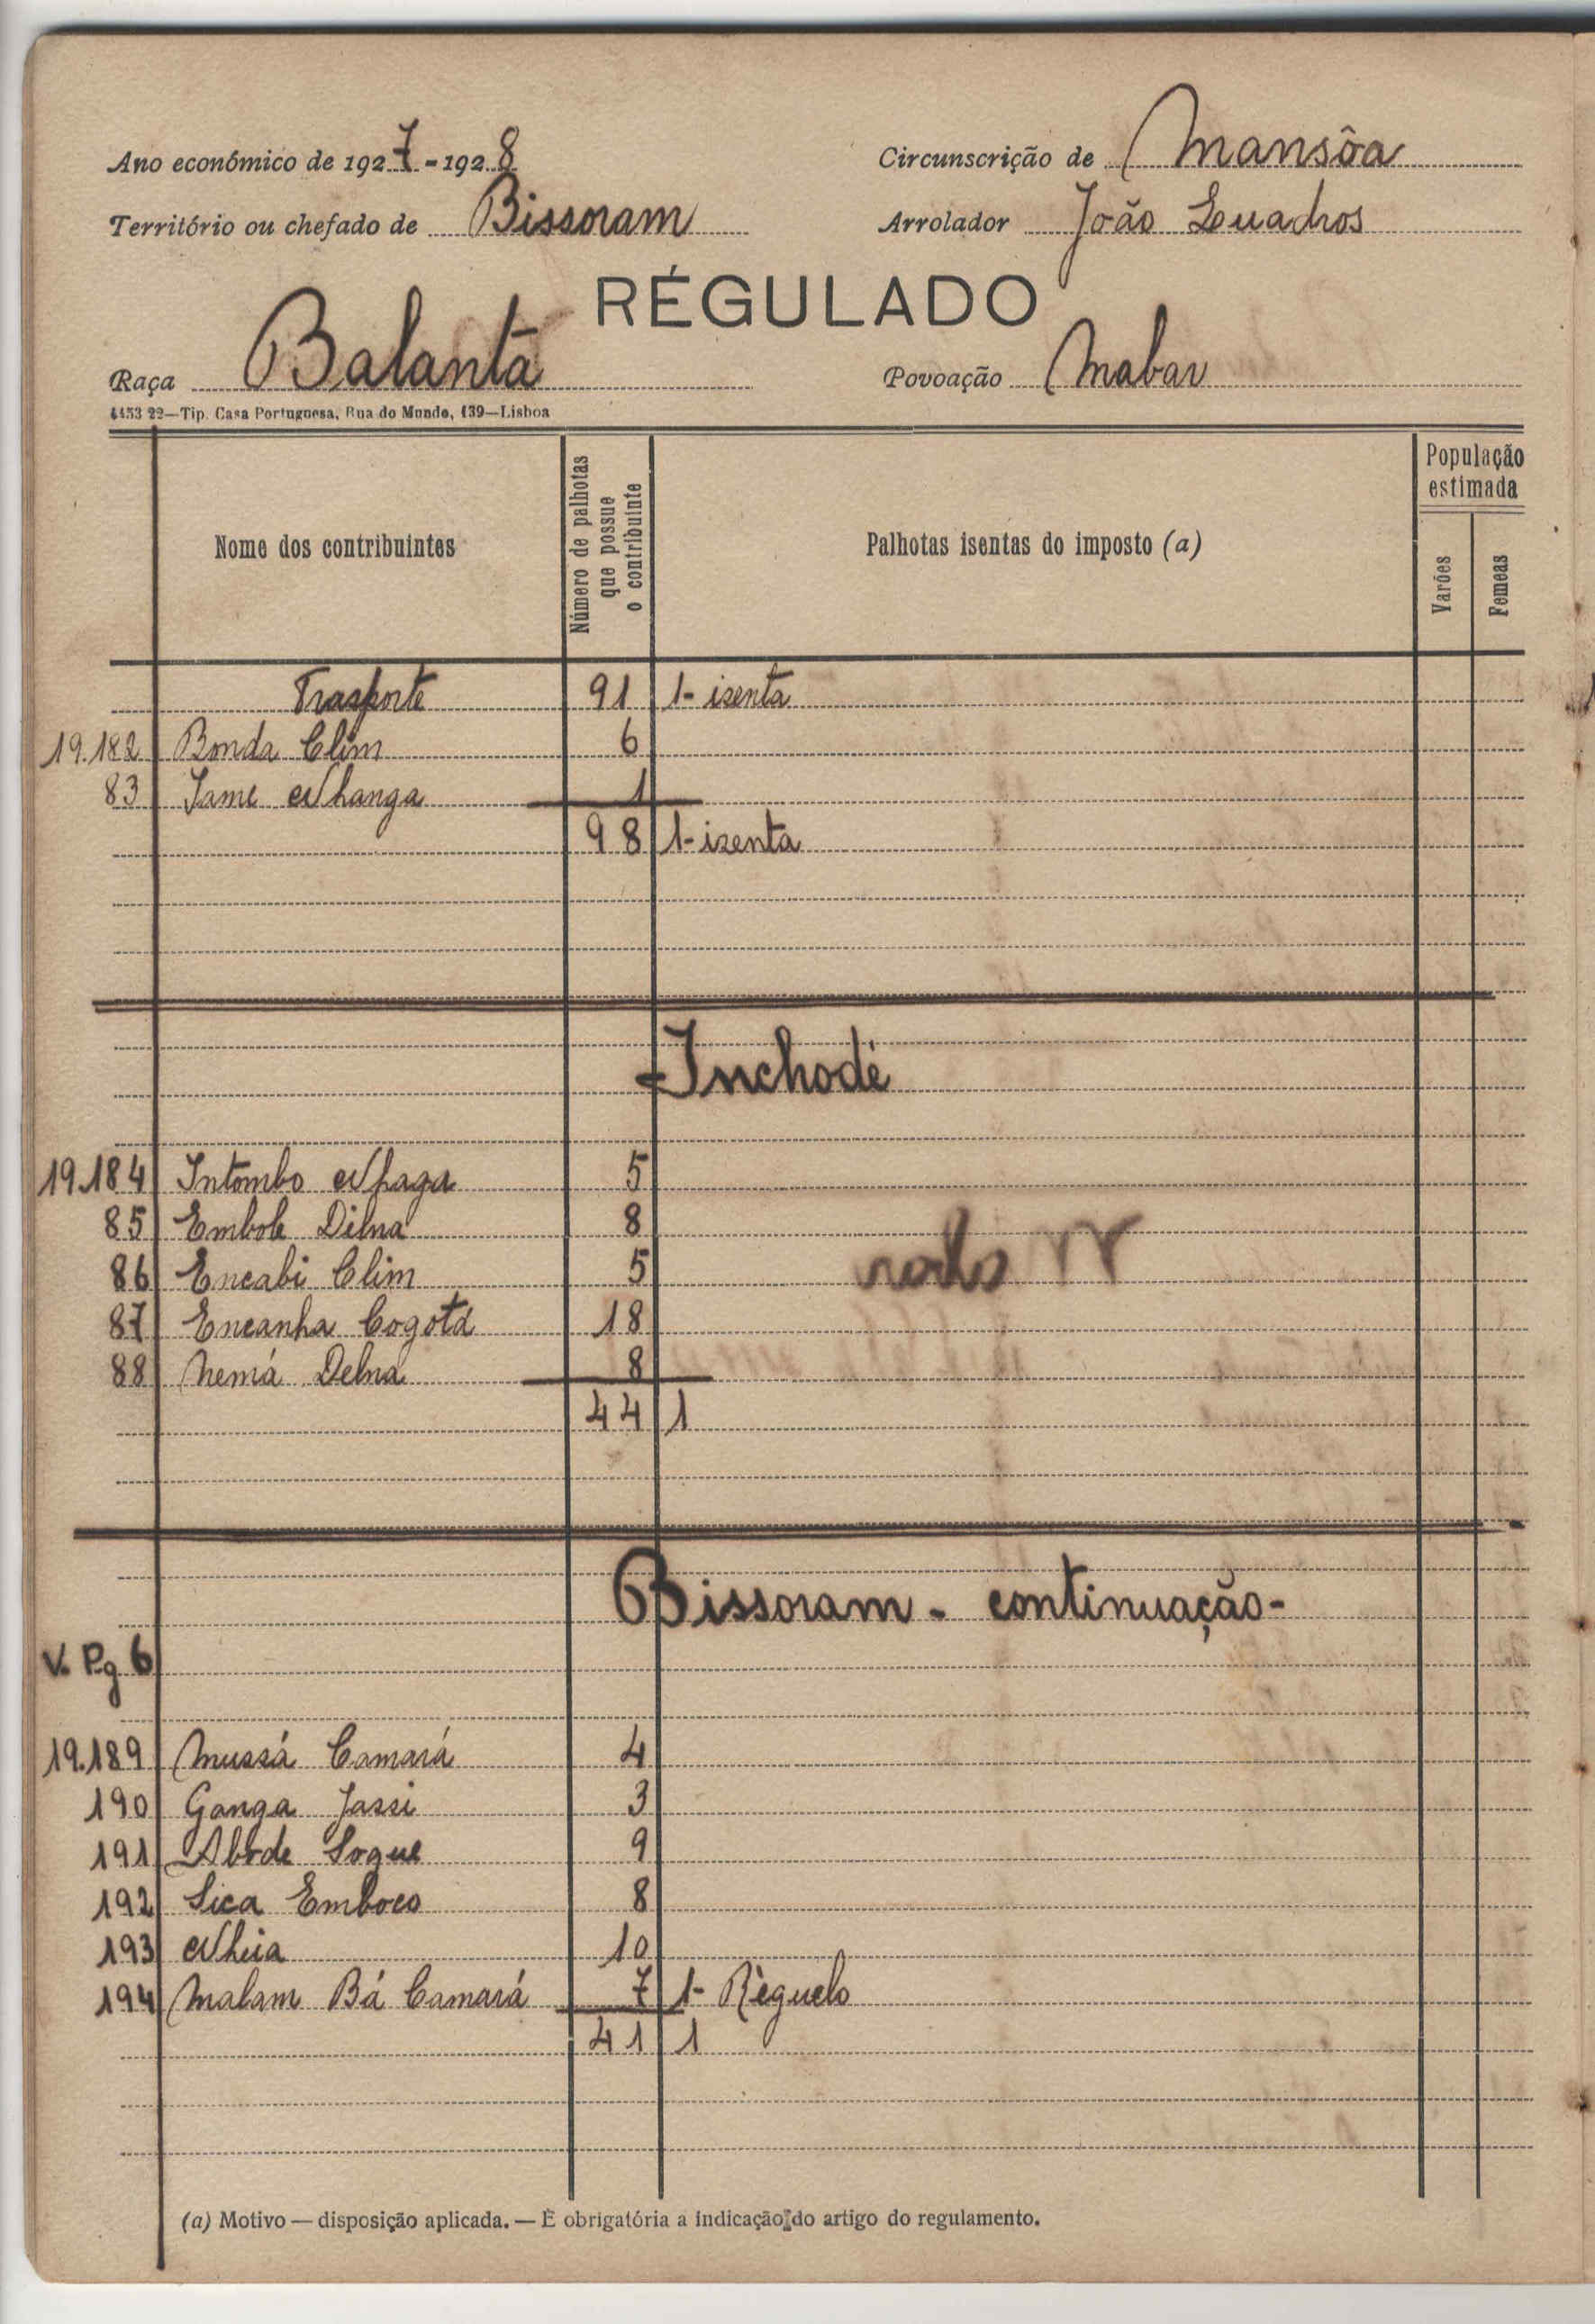 Ano económico de 1927-1928
Circunscrição de Mansôa
Território ou chefado de Bissoram
Arrolador João Quadros
RÉGULADO
Raça Balanta
Povoação Mabar
4453 22—Tip. Casa Portuguesa, Rua do Mundo, 139—Lisboa
Nome dos contribuintes
Número de palhotas que possue o contribuinte
Palhotas isentas do imposto (a)
População estimada
Varões
Femeas
Trasporte 91 1- isenta
19.182 Bonda Clim 6
83 Jame Nhanga 1
98 1- isenta
-Inchodé
19.184 Intombo Nhaga 5
85 Embole Dilna 8
86 Encabi Clim 5
87 Encanha Cogotá 18
88 Nemá Delna 8
44 1
Bissoram - continuação-
V. Pg 6
19.189 Mussá Camará 4
190 Ganga Jassi 3
191 Abode Soque 9
192 Sica Emboco 8
193 Nhia 10
194 Malam Bá Camará 7 1- Règuelo
41 1
(a) Motivo — disposição aplicada. — É obrigatória a indicação do artigo do regulamento.